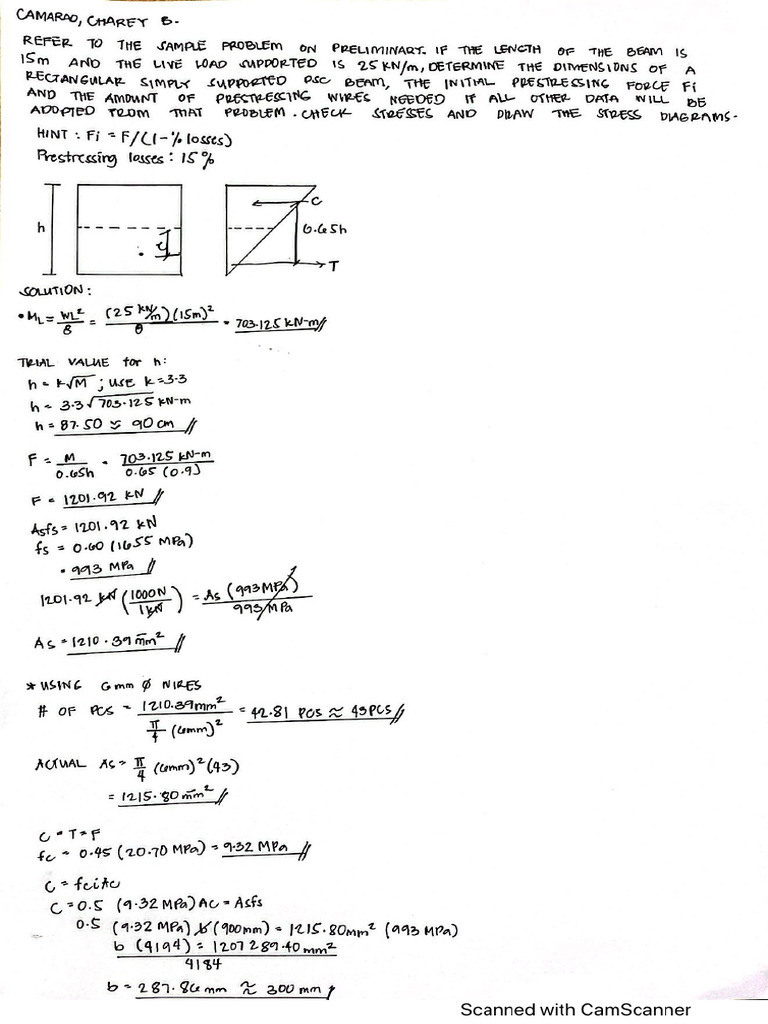 CAMARAO, CHAREY B.
REFER TO THE SAMPLE PROBLEM ON PRELIMINARY. IF THE LENGTH OF THE BEAM IS
15m AND THE LIVE LOAD SUPPORTED IS 25 KN/m, DETERMINE THE DIMENSIONS OF A
RECTANGULAR SIMPLY SUPPORTED PSC BEAM, THE INITIAL PRESTRESSING FORCE Fi
AND THE AMOUNT OF PRESTRESSING WIRES NEEDED IF ALL OTHER DATA WILL BE
ADOPTED FROM THAT PROBLEM. CHECK STRESSES AND DRAW THE STRESS DIAGRAMS.
HINT : Fi = F/(1-% losses)
Prestressing losses : 15%
h
e
C
0.65h
T
SOLUTION:
• ML = WL²/8 = (25 KN/m)(15m)²/8 = 703.125 KN-m
TRIAL VALUE for h:
h = k√M ; USE k = 3.3
h = 3.3√703.125 KN-m
h = 87.50 ≈ 90 cm
F = M/0.65h = 703.125 KN-m/0.65 (0.9)
F = 1201.92 KN
Asfs = 1201.92 KN
fs = 0.60 (1655 MPa)
= 993 MPa
1201.92 KN (1000N/1KN) = As (993 MPa)/993 MPa
As = 1210.39 mm²
* USING 6mm Ø WIRES
# OF PCS = 1210.39mm²/π/4 (6mm)² = 42.81 PCS ≈ 43 PCS
ACTUAL As = π/4 (6mm)² (43)
= 1215.80 mm²
C = T = F
fc = 0.45 (20.70 MPa) = 9.32 MPa
C = fciAc
C = 0.5 (9.32 MPa) AC = Asfs
0.5 (9.32 MPa) b (900mm) = 1215.80mm² (993 MPa)
b (4194) = 1207289.40 mm²
4194
b = 287.86 mm ≈ 300 mm
Scanned with CamScanner